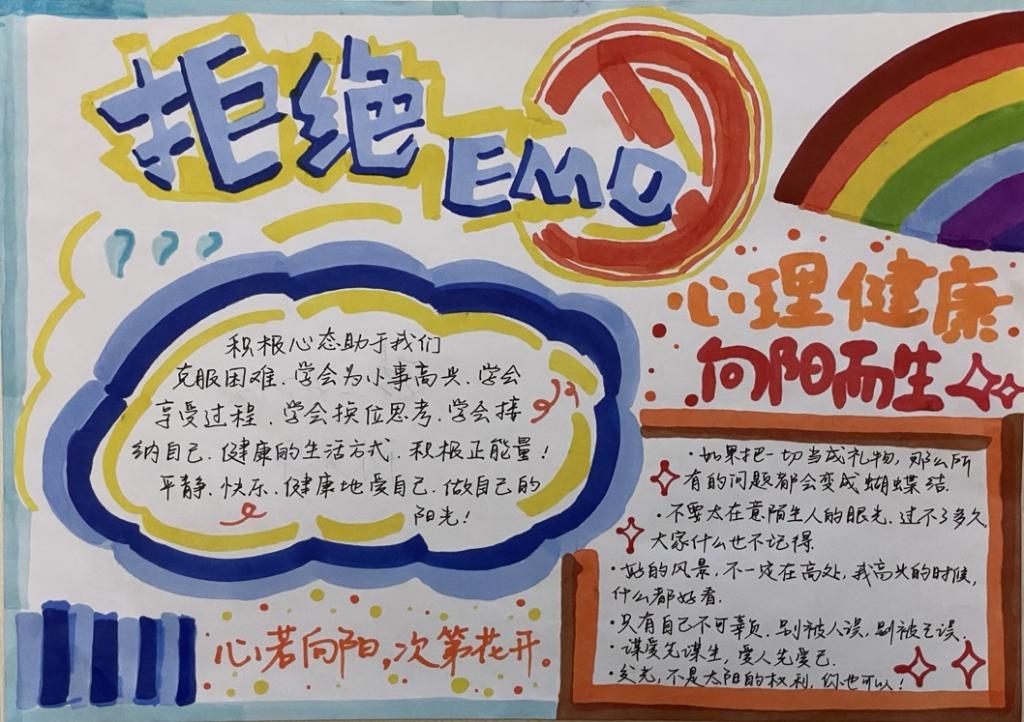 拒绝
EMO
心理健康
向阳而生
积极心态助于我们
克服困难、学会为小事高兴、学会
享受过程、学会换位思考、学会接
纳自己、健康的生活方式、积极正能量!
平静、快乐、健康地爱自己、做自己的
阳光!
·如果把一切当成礼物,那么所
有的问题都会变成蝴蝶结.
·不要太在意陌生人的眼光.过不了多久,
大家什么也不记得.
·好的风景,不一定在高处,我高兴的时候,
什么都好看.
·只有自己不可辜负.别被人误,别被己误.
·谋爱先谋生,爱人先爱己.
·发光,不是太阳的权利,你也可以!
心若向阳,次第花开.